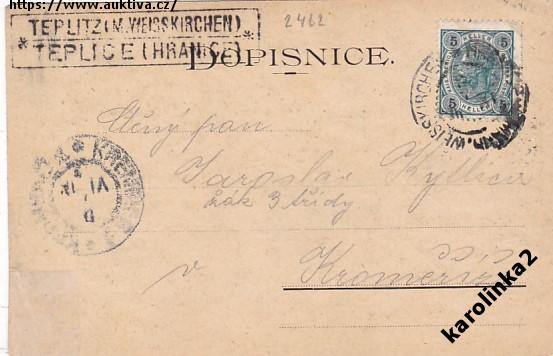 https://www.auktiva.cz/
TEPLITZ (M. WEISSKIRCHEN)
* TEPLICE (HRANICE) *
2462
DOPISNICE.
5 5
HELLER
HELLER
5 5
WEISSKIRCHEN
KREMSIER
Ctěný pan
Jaroslav Kyllica
žák 3 třídy
v Kroměříži
karolinka2